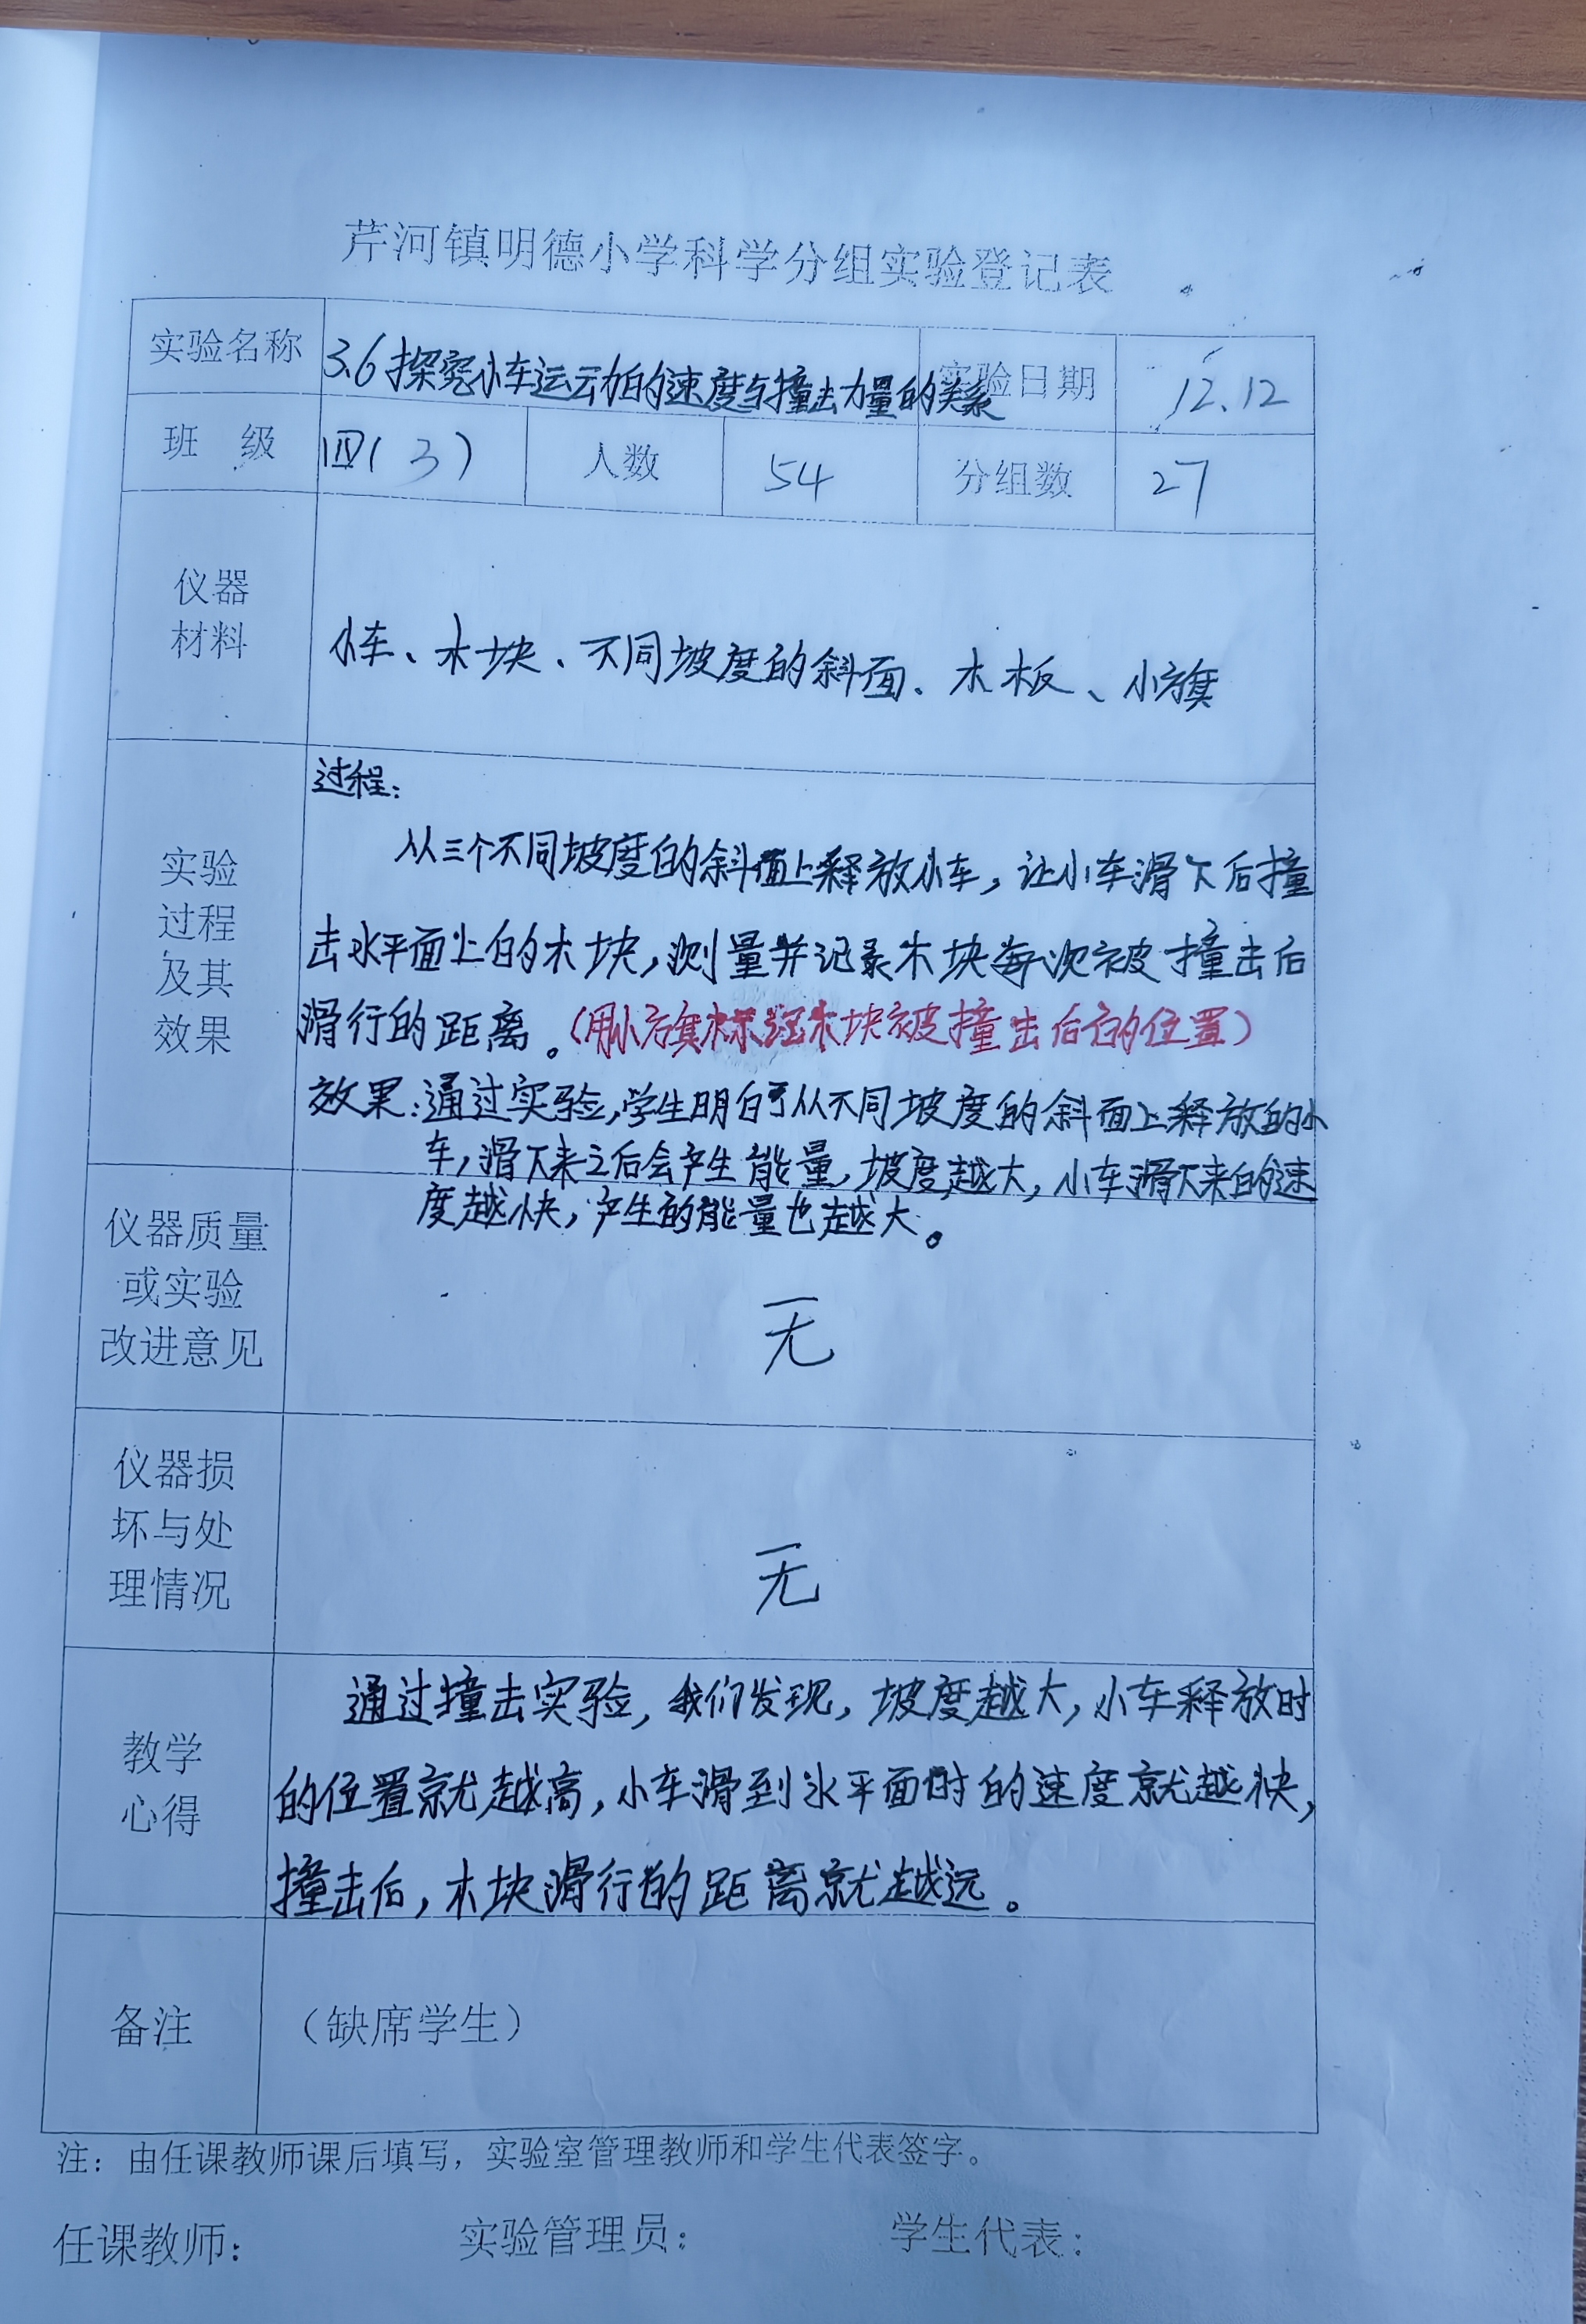 芹河镇明德小学科学分组实验登记表
实验名称 3.6探究小车运动的速度与撞击力量的关系 实验日期 12.12
班 级 四(3) 人数 54 分组数 27
仪器
材料
小车、木块、不同坡度的斜面、木板、小旗
实验
过程
及其
效果
过程:
从三个不同坡度的斜面上释放小车,让小车滑下后撞
击水平面上的木块,测量并记录木块每次被撞击后
滑行的距离。(用小旗标记木块被撞击后的位置)
效果:通过实验,学生明白了从不同坡度的斜面上释放的小
车,滑下来之后会产生能量,坡度越大,小车滑下来的速
度越快,产生的能量也越大。
仪器质量
或实验
改进意见
无
仪器损
坏与处
理情况
无
教学
心得
通过撞击实验,我们发现,坡度越大,小车释放时
的位置就越高,小车滑到水平面时的速度就越快,
撞击后,木块滑行的距离就越远。
备注 (缺席学生)
注:由任课教师课后填写,实验室管理教师和学生代表签字。
任课教师: 实验管理员: 学生代表: